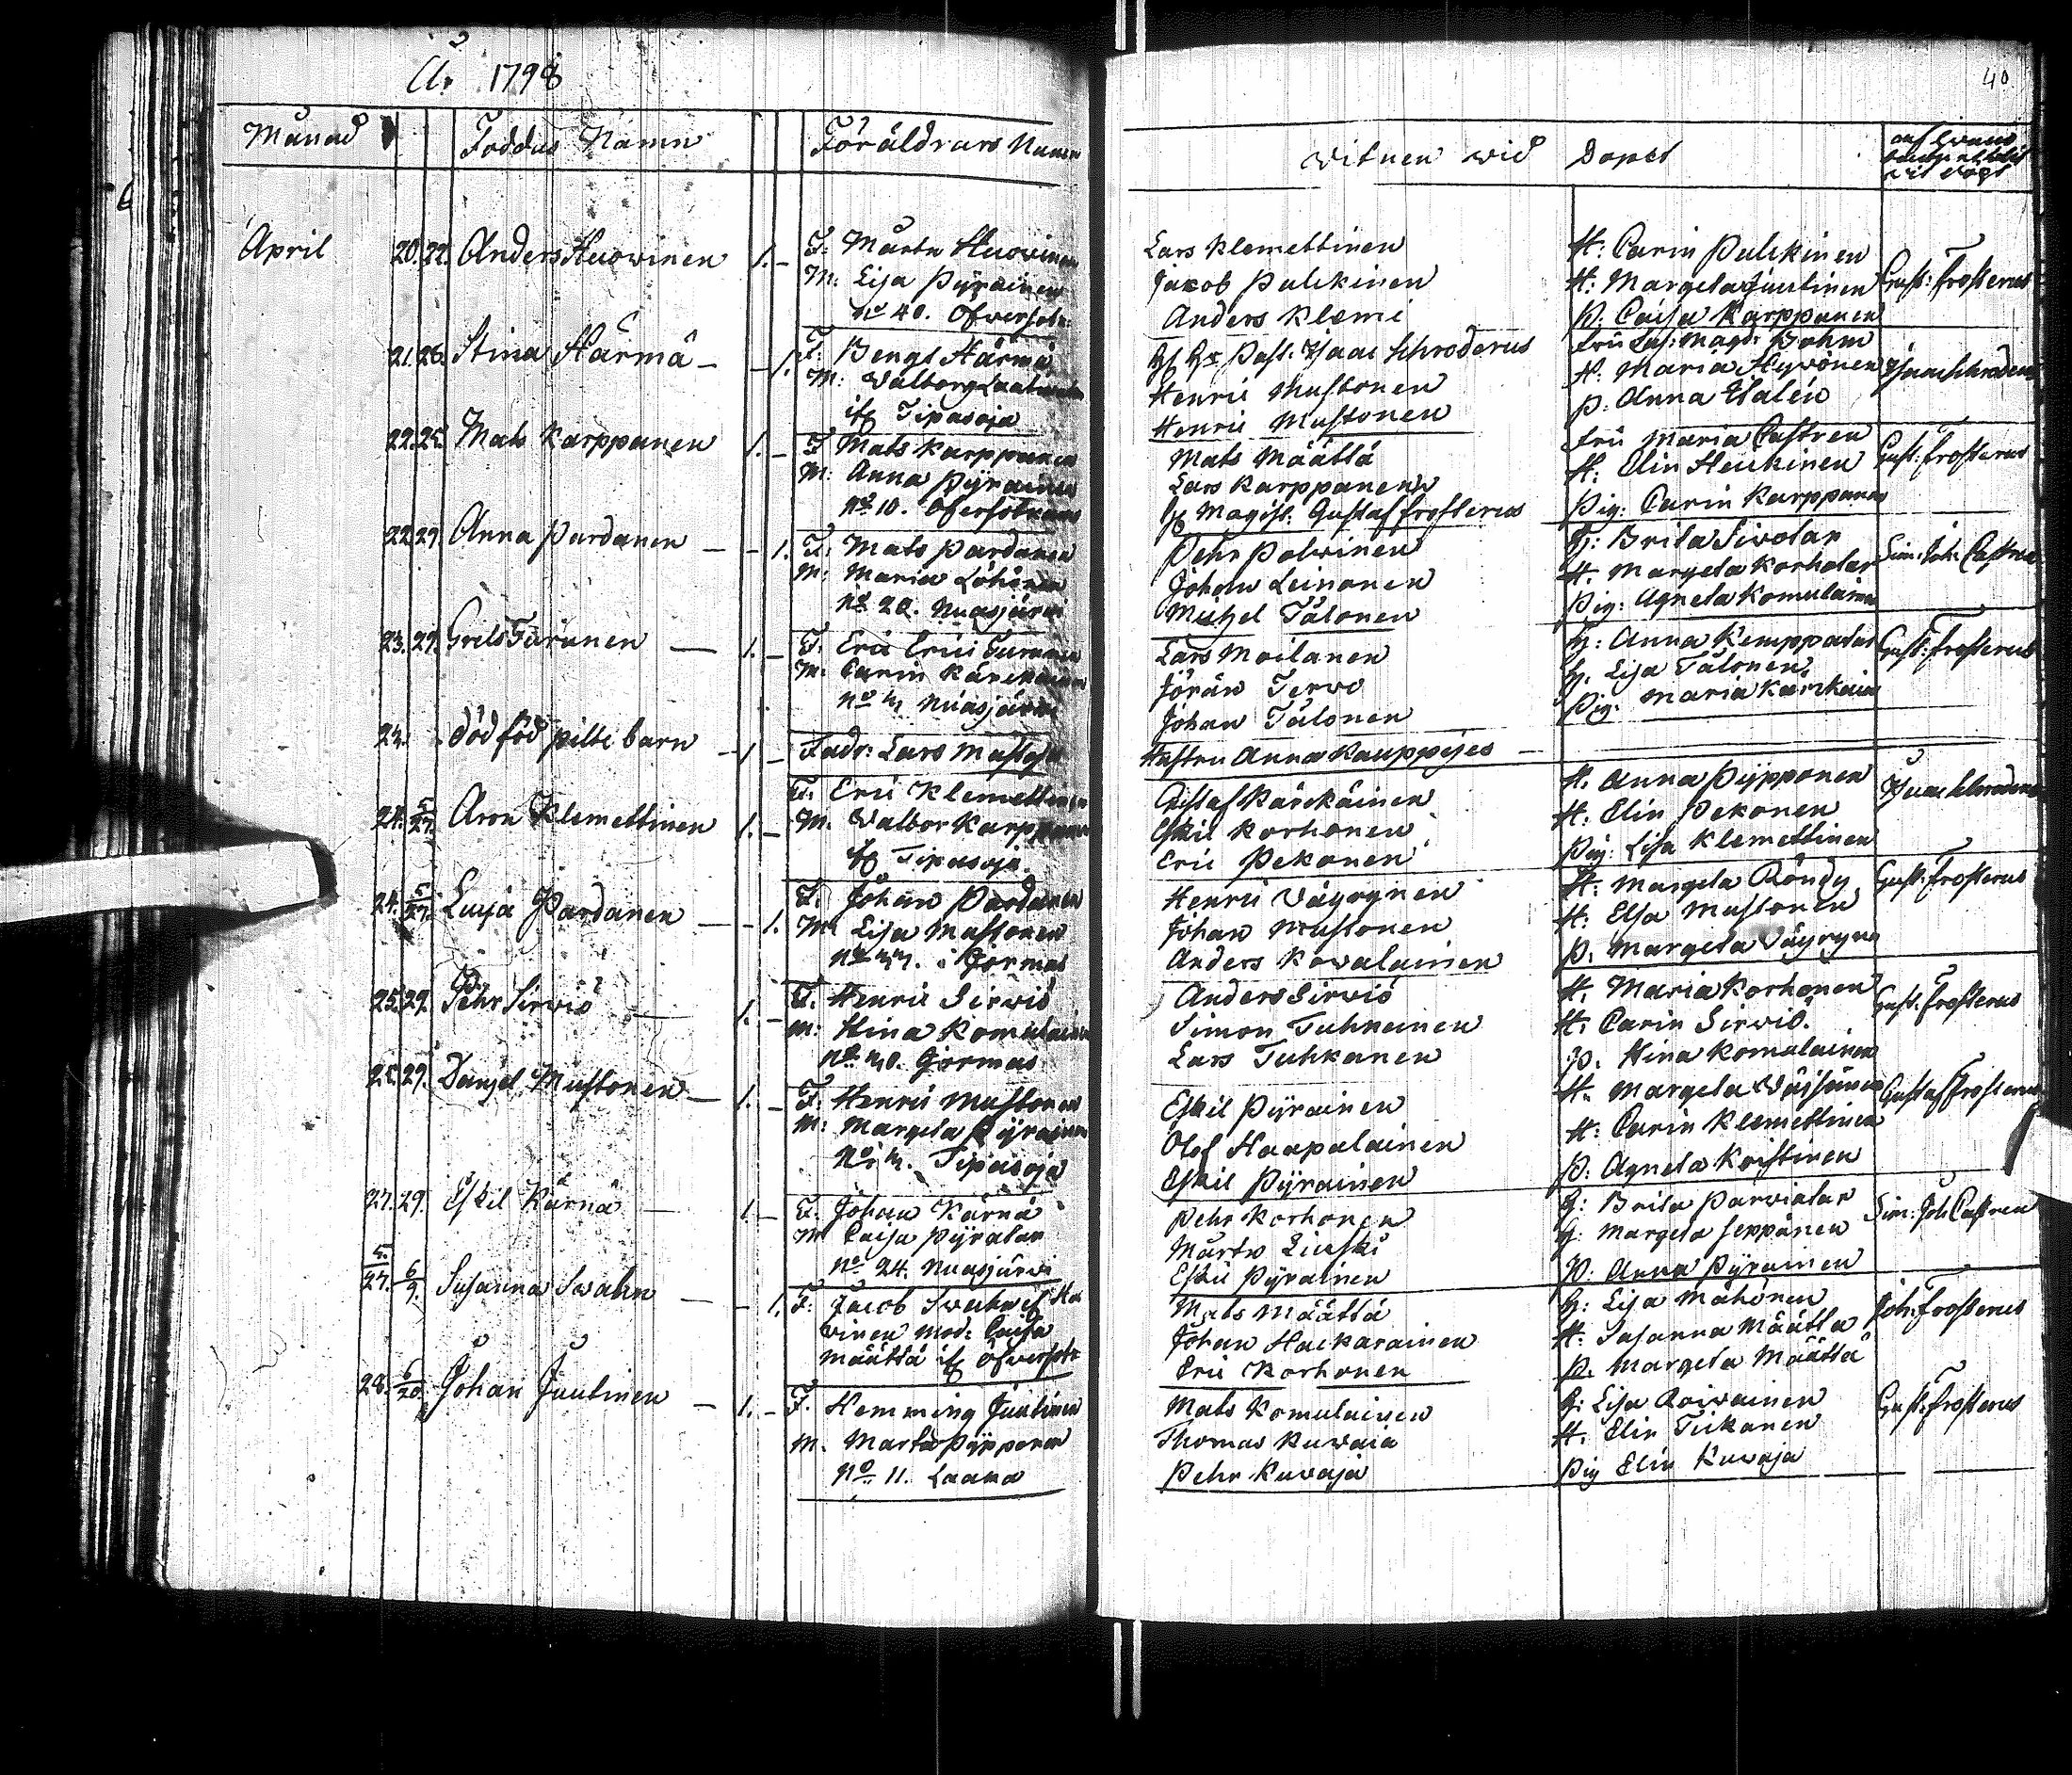 År 1798
40
Månad
Föddas Namn
Föräldrars Namn
Witnen wid Dopet
April
20. 22. Anders Huowinen 1.
F: Mårtn Huowinen
M: Lisa Pyräinen
No 40. Öfwersotk:
Lars Klemettinen
Jacob Pulckinen
Anders Klemi
H: Carin Pulckinen
H: Margeta Juutinen
P: Caisa Karppanen
Gust: Frosterus
21. 26. Stina Härmä 1.
F: Bengt Härmä
M: Walborg
Tipasoja
Past: Isaac Schroderus
Henric Mustonen
Henric Mustonen
Fru Cat: Magd: Bohm
H: Maria Hyvönen
P: Anna Halén
Isaac Schroderus
22. 25. Mats Karppanen 1.
F Mats Karppanen
M: Anna Pyräinen
No 10. Öfersotkamo
Mats Määttä
Lars Karppanen
H Magist: Gustaf Frosterus
Fru Maria Castren
H: Elin Heickinen
Pig: Carin Karppanen
Gust: Frosterus
22. 29. Anna Pardanen 1.
F: Mats Pardanen
M: Maria Löhönen
No 20. Nuasjärwi
Pehr Polwinen
Johan Leinonen
Michel Tålonen
H: Brita Siwolar
H. Margeta Korholar
Pig: Agneta Komulainen
Sim: Joh: Castren
23. 29. Grels Turunen 1.
F: Eric Erici Turunen
M: Carin Kärckäinen
Nuasjärwi
Lars Moilanen
Jöran Terwo
Johan Tålonen
H: Anna Kemppatar
H. Lisa Tålonen
Pig: Maria Kärckäin
Gust: Frosterus
24. dödföd pilte barn 1
Fadr: Lars Mustonen
Hustru Anna Kauppijes
24. 5/27. Aron Klemettinen 1.
F: Eric Klemettinen
M. Walbor Karppanen
Tipasoja.
Gustaf Kärckäinen
Eskil Korhonen
Eric Pekonen
H. Anna Pypponen
H: Elin Pekonen
Pig: Lisa Klemettinen
Isaac Schroderus
24. 5/27. Luisa Pardanen 1.
F: Johan Pardanen
M: Lisa Mustonen
No 44. Gormas
Henric Wäyrynen
Johan Mustonen
Anders Kowalainen
H: Margeta Röndy
H: Elsa Mustonen
P: Margeta Wäyryne
Gust: Frosterus
25. 29. Pehr Sirwiö 1.
F: Henric Sirwiö
M: Stina Komulainen
No 40. Gormas
Anders Sirwiö
Simon Tuhkainen
Lars Tuhkanen
H. Maria Korhonen
H: Carin Sirwiö.
P. Stina Komulainen
Gust: Frosterus
25. 29. Daniel Mustonen 1.
F: Henric Mustonen
M: Margeta Pyräinen
No 4. Tipasoja
Eskil Pyräinen
Olof Haapalainen
Eskil Pyräinen
H. Margeta Wäisänen
H: Carin Klemettinen
P: Agneta Koistinen
Gustaf Frosterus
27. 29. Eskil Kärnä 1.
F: Johan Kärnä
M Caisa Pyratar
No 24. Nuasjärwi
Pehr Korhonen
Mårtn Liuski
Eskil Pyräinen
H: Brita Parwiatar
H: Margeta Seppänen
P: Anna Pyräinen
Sim: Joh Castren
5/27. 6/9. Susanna Swahn 1.
F: Jacob Swahn
winen Mod: Caisa
Määttä Öfwersotk
Mats Määttä
Johan Hackarainen
Eric Korhonen
H: Lisa Mähönen
H: Susanna Määttä
P. Margeta Määttä
Joh: Frosterus
28. 6/20. Johan Juutinen 1.
F. Hemming Juutinen
M. Marta Pypponen
No 11. Laaka
Mats Komulainen
Thomas Kuwaia
Pehr Kuwaja
H: Lisa Roiwainen
H. Elin Tickanen
Pig Elin Kuwaja
Gust: Frosterus